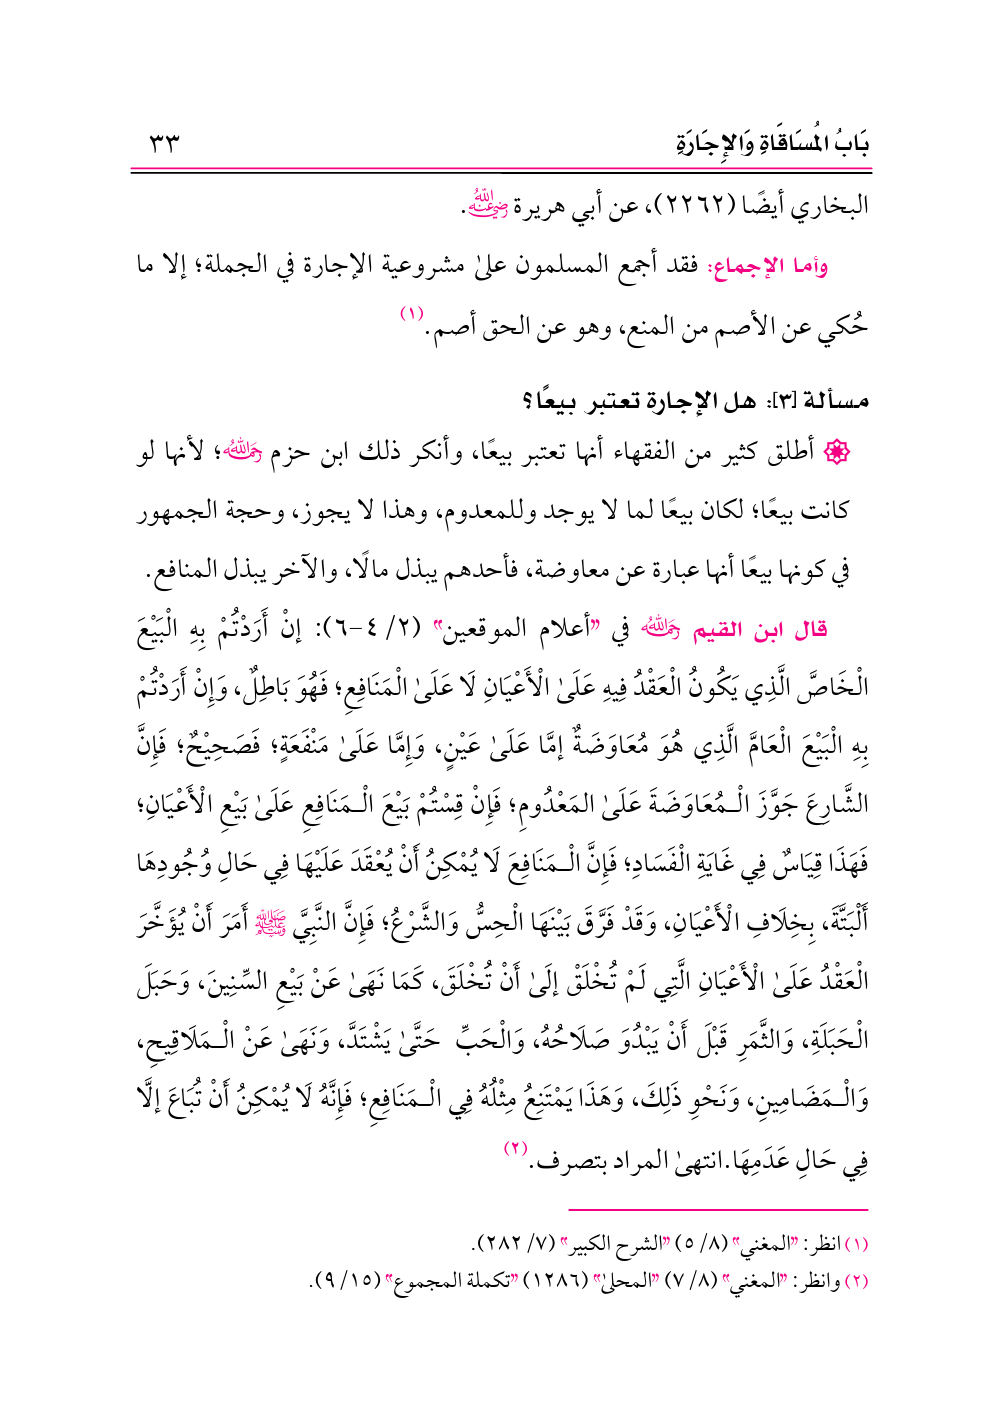 بَابُ المُسَاقَاةِ وَالإِجَارَةِ ٣٣
البخاري أيضًا (٢٢٦٢)، عن أبي هريرة رضي الله عنه.
وأما الإجماع: فقد أجمع المسلمون علىٰ مشروعية الإجارة في الجملة؛ إلا ما
حُكي عن الأصم من المنع، وهو عن الحق أصم.(١)
مسألة [٣]: هل الإجارة تعتبر بيعًا؟
أطلق كثير من الفقهاء أنها تعتبر بيعًا، وأنكر ذلك ابن حزم رحمه الله؛ لأنها لو
كانت بيعًا؛ لكان بيعًا لما لا يوجد وللمعدوم، وهذا لا يجوز، وحجة الجمهور
في كونها بيعًا أنها عبارة عن معاوضة، فأحدهم يبذل مالًا، والآخر يبذل المنافع.
قال ابن القيم رحمه الله في "أعلام الموقعين" (٢/ ٤-٦): إنْ أَرَدْتُمْ بِهِ الْبَيْعَ
الْخَاصَّ الَّذِي يَكُونُ الْعَقْدُ فِيهِ عَلَىٰ الْأَعْيَانِ لَا عَلَىٰ الْمَنَافِعِ؛ فَهُوَ بَاطِلٌ، وَإِنْ أَرَدْتُمْ
بِهِ الْبَيْعَ الْعَامَّ الَّذِي هُوَ مُعَاوَضَةٌ إمَّا عَلَىٰ عَيْنٍ، وَإِمَّا عَلَىٰ مَنْفَعَةٍ؛ فَصَحِيْحٌ؛ فَإِنَّ
الشَّارِعَ جَوَّزَ الْـمُعَاوَضَةَ عَلَىٰ المَعْدُومِ؛ فَإِنْ قِسْتُمْ بَيْعَ الْـمَنَافِعِ عَلَىٰ بَيْعِ الْأَعْيَانِ؛
فَهَذَا قِيَاسٌ فِي غَايَةِ الْفَسَادِ؛ فَإِنَّ الْـمَنَافِعَ لَا يُمْكِنُ أَنْ يُعْقَدَ عَلَيْهَا فِي حَالِ وُجُودِهَا
أَلْبَتَّةَ، بِخِلَافِ الْأَعْيَانِ، وَقَدْ فَرَّقَ بَيْنَهَا الْحِسُّ وَالشَّرْعُ؛ فَإِنَّ النَّبِيَّ ﷺ أَمَرَ أَنْ يُؤَخَّرَ
الْعَقْدُ عَلَىٰ الْأَعْيَانِ الَّتِي لَمْ تُخْلَقْ إلَىٰ أَنْ تُخْلَقَ، كَمَا نَهَىٰ عَنْ بَيْعِ السِّنِينَ، وَحَبَلَ
الْحَبَلَةِ، وَالثَّمَرِ قَبْلَ أَنْ يَبْدُوَ صَلَاحُهُ، وَالْحَبِّ حَتَّىٰ يَشْتَدَّ، وَنَهَىٰ عَنْ الْـمَلَاقِيحِ،
وَالْـمَضَامِينِ، وَنَحْوِ ذَلِكَ، وَهَذَا يَمْتَنِعُ مِثْلُهُ فِي الْـمَنَافِعِ؛ فَإِنَّهُ لَا يُمْكِنُ أَنْ تُبَاعَ إلَّا
فِي حَالِ عَدَمِهَا.انتهىٰ المراد بتصرف.(٢)
(١) انظر: "المغني" (٨/ ٥) "الشرح الكبير" (٧/ ٢٨٢).
(٢) وانظر: "المغني" (٨/ ٧) "المحلىٰ" (١٢٨٦) "تكملة المجموع" (١٥/ ٩).